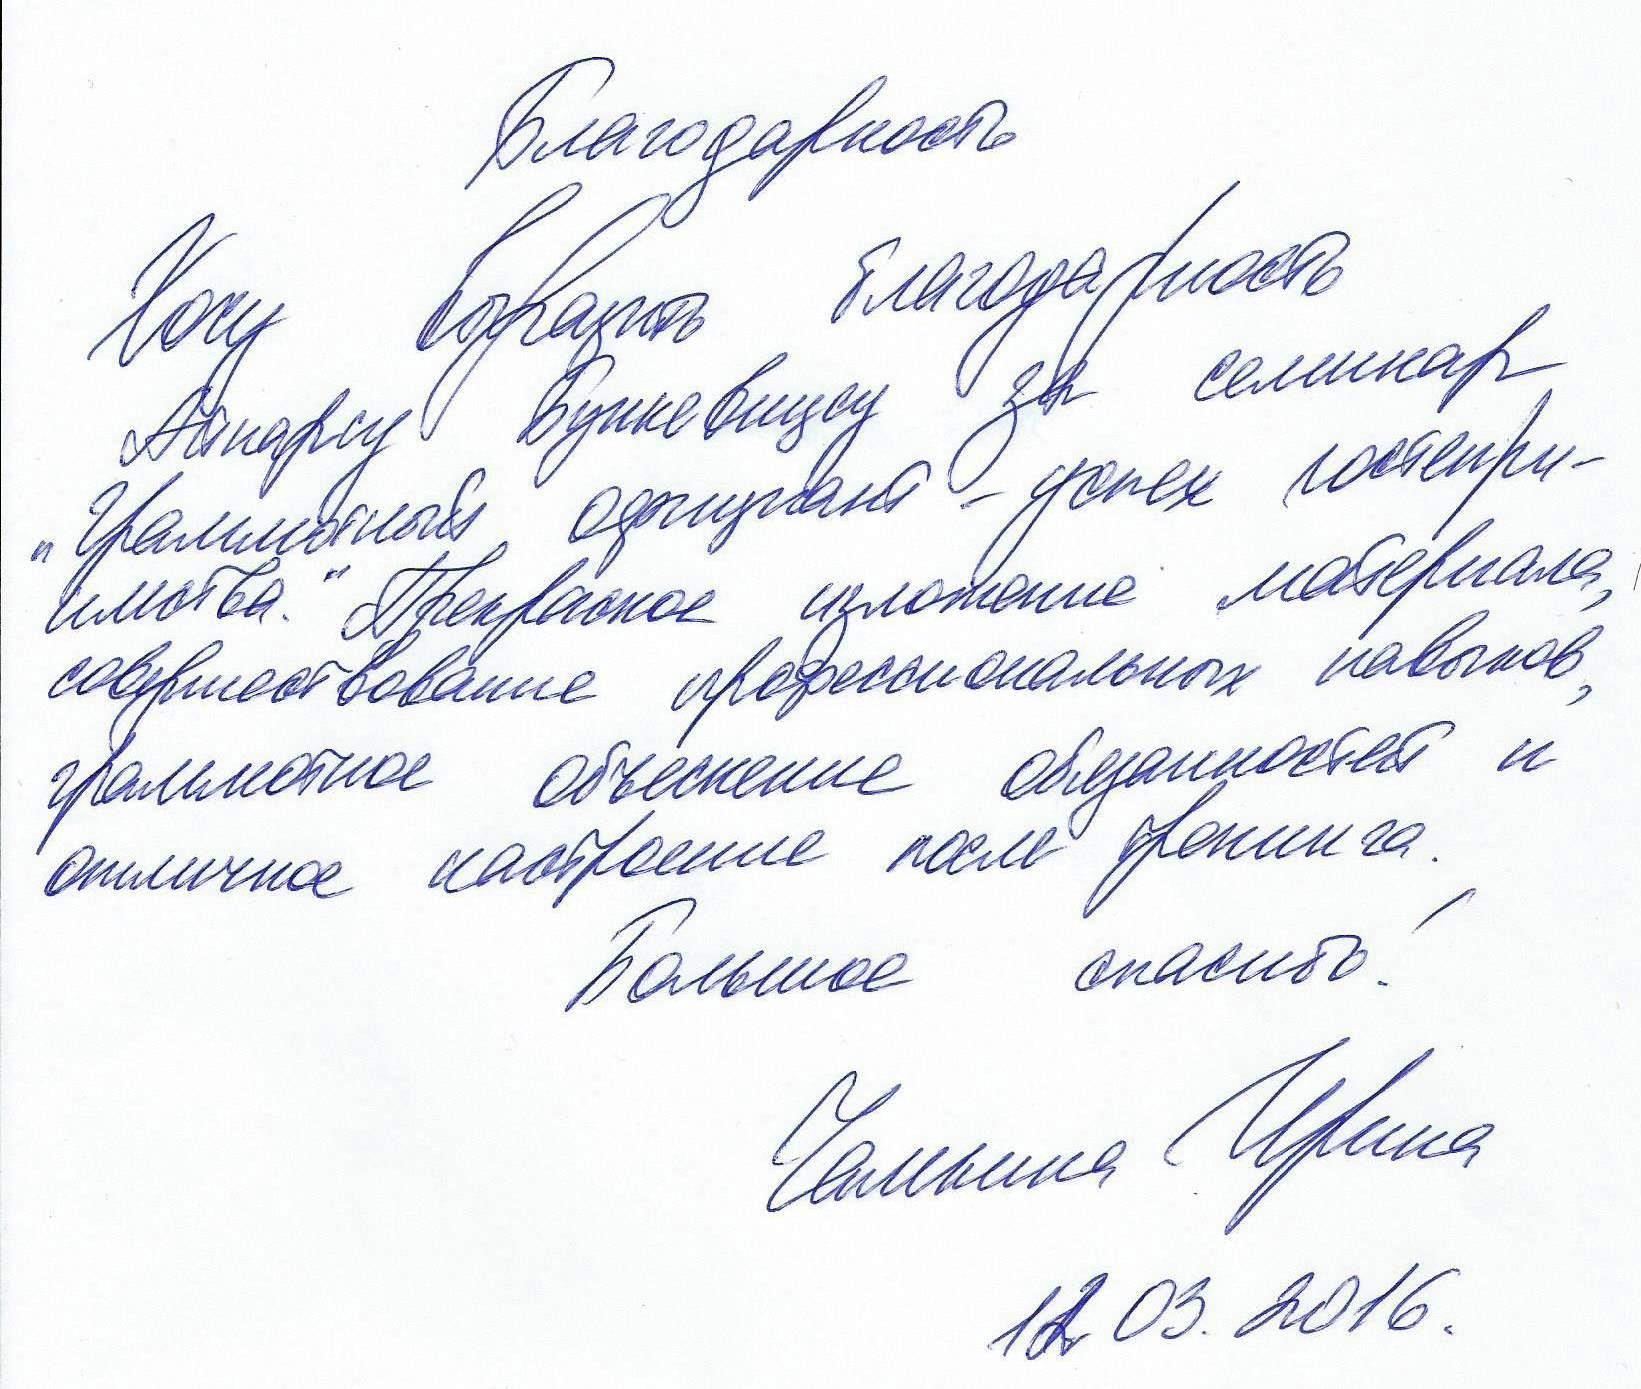 Благодарность
Хочу выразить благодарность
Айнарсу Бункевицсу за семинар
"Грамотный официант - успех гостепри-
имства." Прекрасное изложение материала,
совершествование профессиональных навыков,
грамотное объеснение обязанностей и
отличное настроение после тренинга.
Большое спасибо!
Ирина
12 03. 2016.